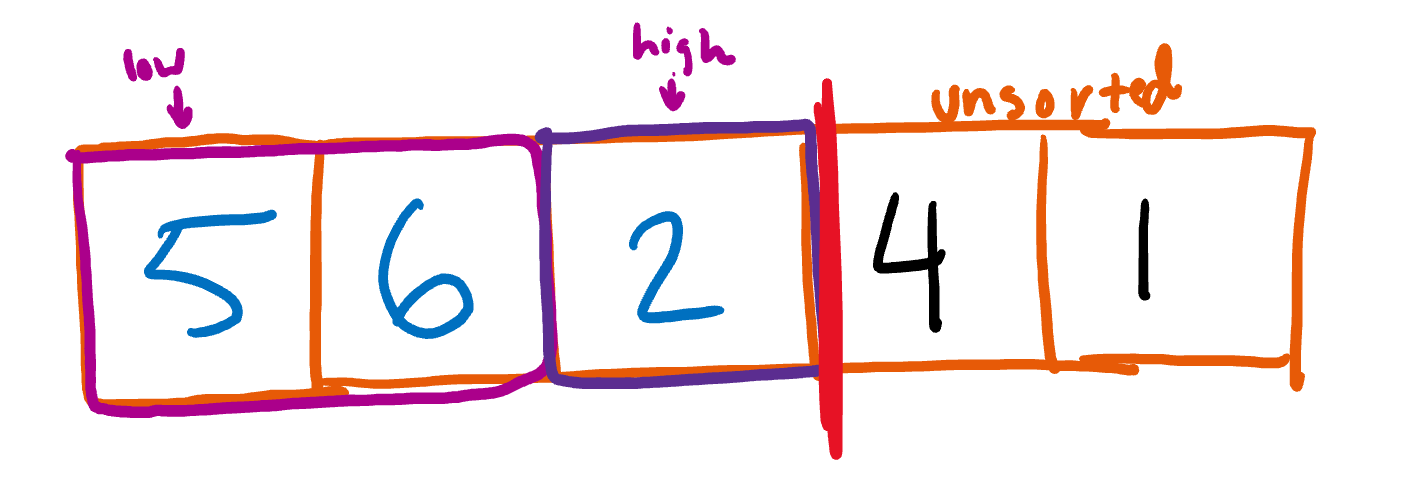 low high unsorted
5 6 2 4 1